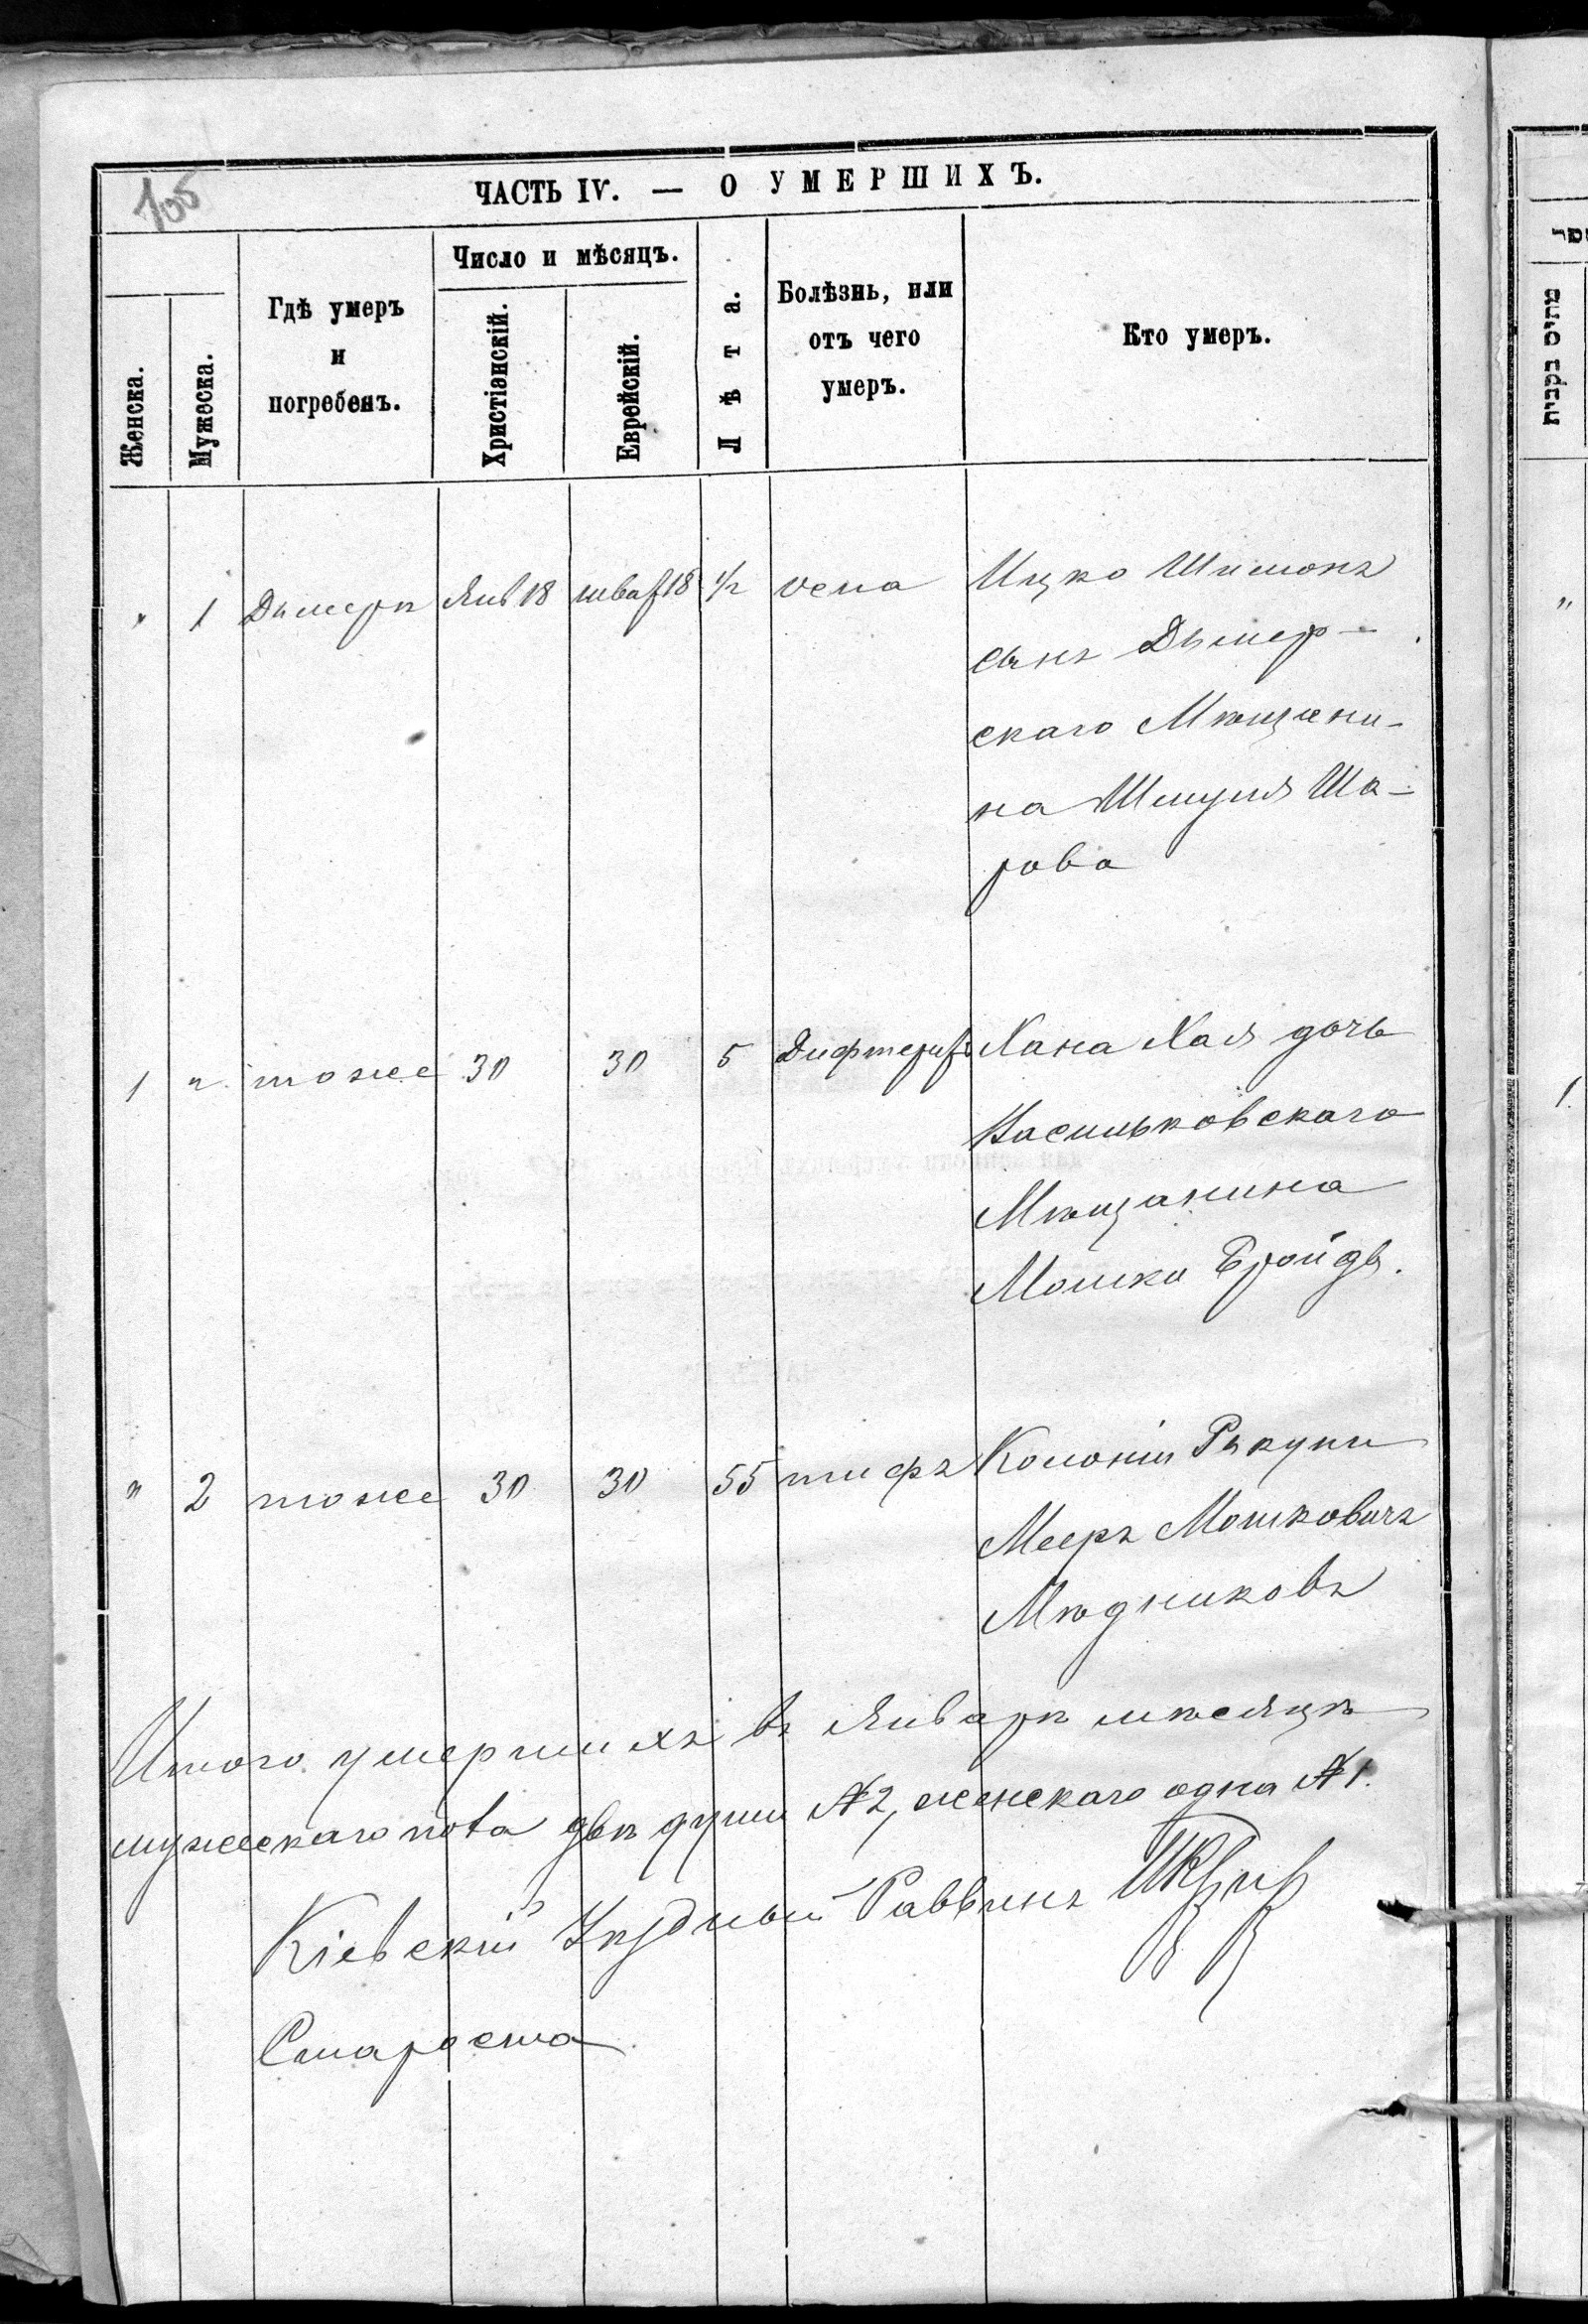 105
ЧАСТЬ IV. — О УМЕРШИХЪ.
Женска.
Мужеска.
Гдѣ умеръ
и
погребенъ.
Число и мѣсяцъ.
Христіанскій.
Еврейскій.
Лѣта.
Болѣзнь, или
отъ чего
умеръ.
Кто умеръ.
" 1 Дымеръ Янв 18 шват 18 1/2 оспа Ицко Шимонъ
сынъ Дымер-
скаго Мѣщени-
на Шмуля Ша-
рова
1 " тоже 30 30 5 Дифтерит Хана Хая дочь
Васильковскаго
Мѣщанина
Мошка Бройдъ.
" 2 тоже 30 30 55 тифъ Колоніи Рыкунь
Мееръ Мошковичъ
Мѣдниковъ
Итого умершихъ въ Январѣ мѣсяцѣ
мужескаго пола двѣ души № 2, женскаго одна № 1.
Кіевскій Уѣздный Раввинъ
Староста
מתים נקבות
"
1.